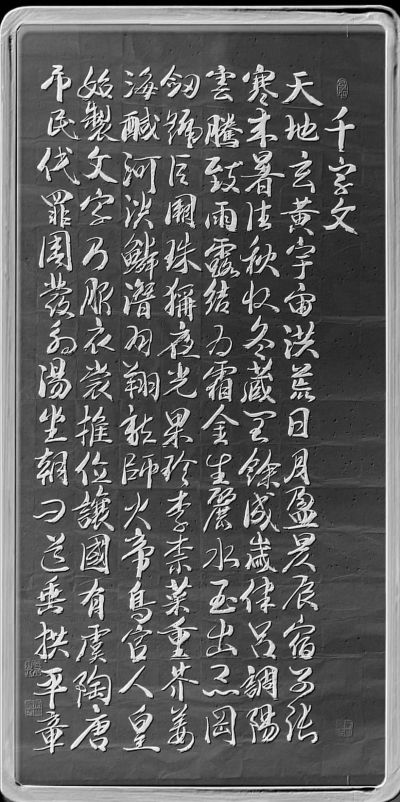 千字文
天地玄黃宇宙洪荒日月盈昃辰宿列張
寒来暑往秋收冬藏閏餘成歲律呂調陽
雲騰致雨露結為霜金生麗水玉出崑岡
劔號巨闕珠稱夜光果珍李柰菜重芥薑
海鹹河淡鱗潛羽翔龍師火帝鳥官人皇
始製文字乃服衣裳推位讓國有虞陶唐
吊民伐罪周發殷湯坐朝問道垂拱平章